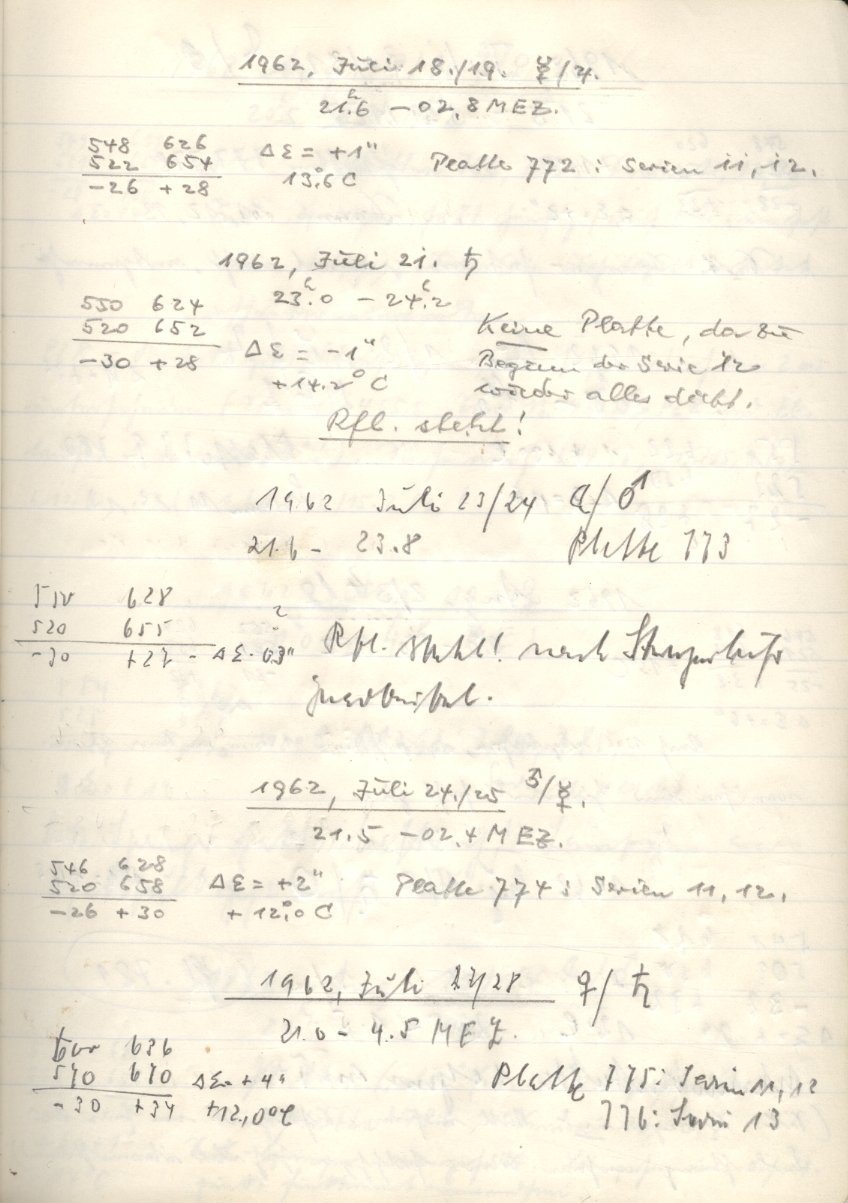 1962, Juli 18./19. ☿/♃.
21.ʰ6 – 02,8 MEZ.
548 626 Δε = +1" Platte 772 : Serien 11, 12.
522 654 13.°6 C
-26 +28
1962, Juli 21. ♄
23.ʰ0 – 24.ʰ2
550 624
520 652
-30 +28
Δε = -1"
+14.2° C
Keine Platte, da zu
Beginn der Serie 12
wieder alles dicht.
Rfl. steht!
1962 Juli 23/24 ☾/♂
21.6 – 23.8 Platte 773
550 628
520 655
-30 +27 - Δε · 0.3" Rfl. steht! nach
1962, Juli 24./25 ♂/☿.
21.5 – 02.4 MEZ.
546 628
520 658 Δε = +2" Platte 774 : Serien 11, 12.
-26 +30 + 12.°0 C
1962, Juli 27/28 ♀/♄
21.0 – 4.5 MEZ.
600 636
570 670 Δε = +4" Platte 775: Serien 11, 12
-30 +34 +12,0°C 776: Serie 13